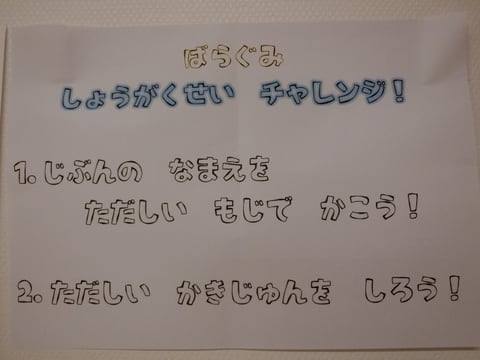 ばらぐみ
しょうがくせい　チャレンジ！
1. じぶんの　なまえを
ただしい　もじで　かこう！
2. ただしい　かきじゅんを　しろう！